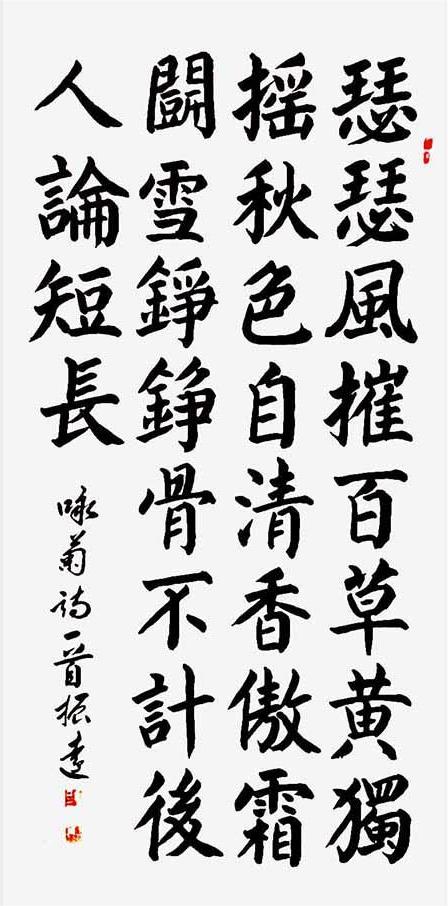 瑟瑟風摧百草黄獨
摇秋色自清香傲霜
鬪雪錚錚骨不計後
人論短長
咏菊詩一首振遠